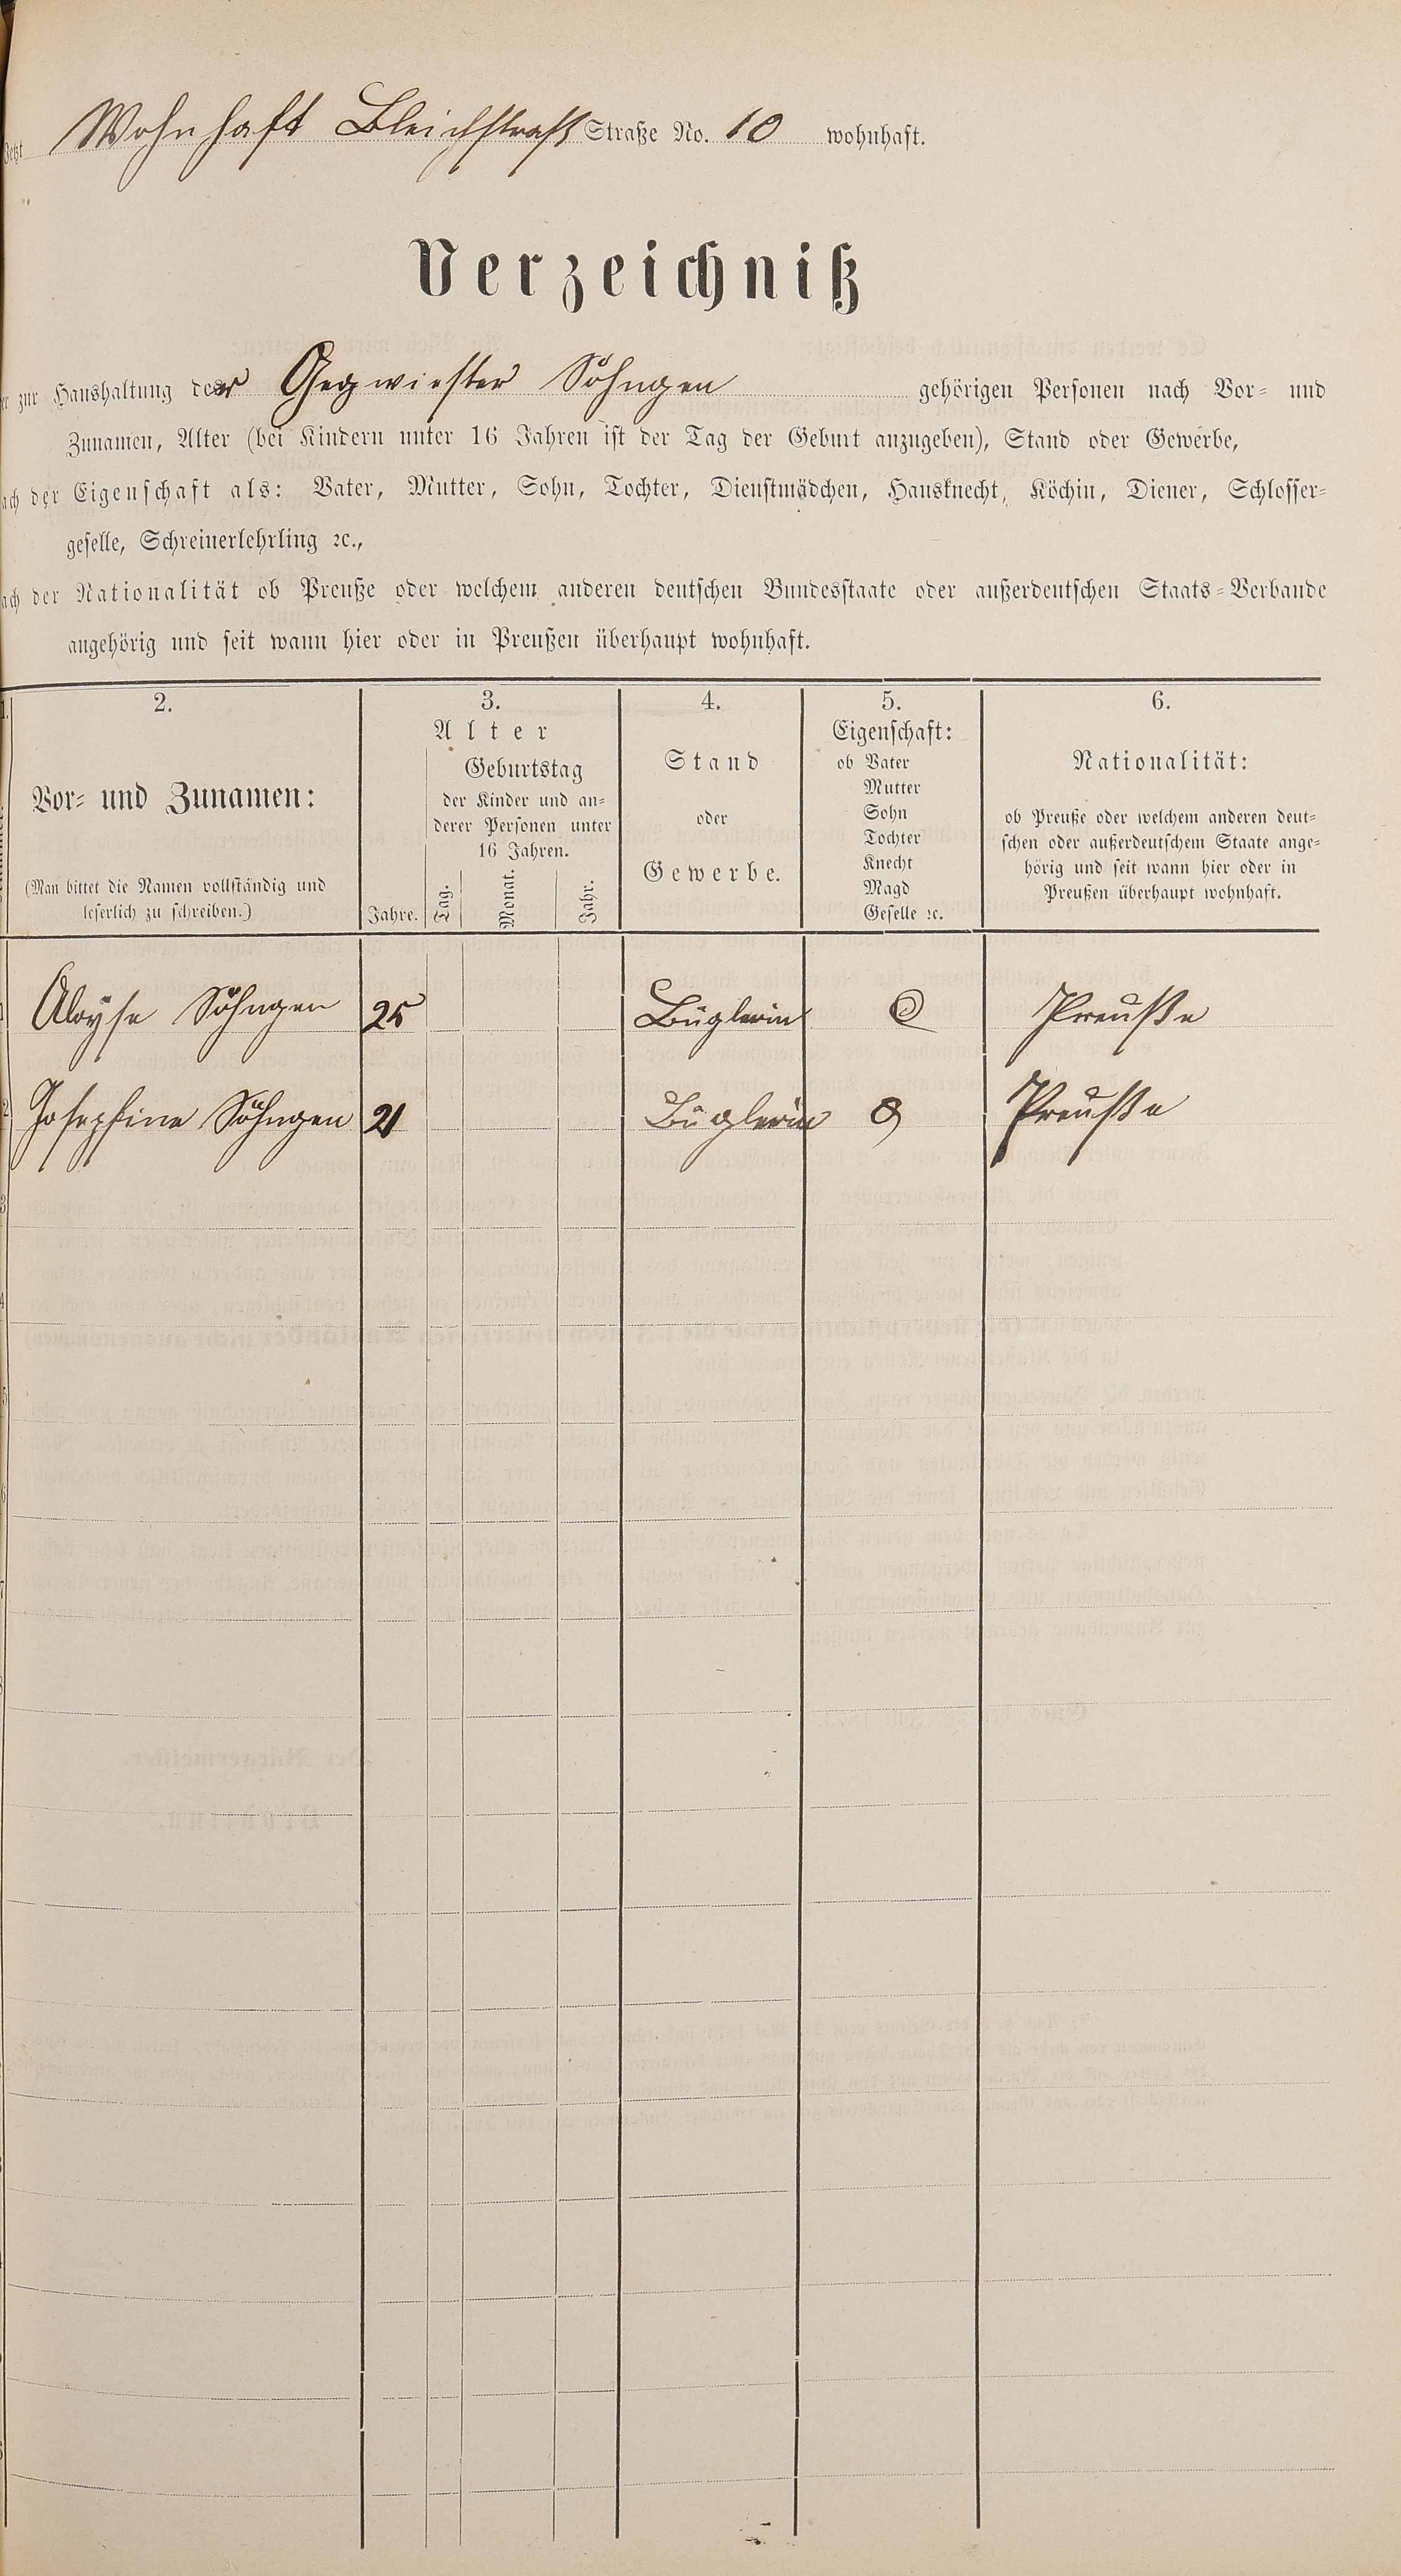 Jetzt Wohnhaft Bleichstraß Straße No. 10 wohnhaft.
Verzeichniß
der zur Haushaltung der Gegwiester Söhngen gehörigen Personen nach Vor- und
Zunamen, Alter (bei Kindern unter 16 Jahren ist der Tag der Geburt anzugeben), Stand oder Gewerbe,
nach der Eigenschaft als: Vater, Mutter, Sohn, Tochter, Dienstmädchen, Hausknecht, Köchin, Diener, Schlosser-
geselle, Schreinerlehrling ꝛc.,
nach der Nationalität ob Preuße oder welchem anderen deutschen Bundesstaate oder außerdeutschen Staats-Verbande
angehörig und seit wann hier oder in Preußen überhaupt wohnhaft.
1.
2.
Vor- und Zunamen:
(Man bittet die Namen vollständig und
leserlich zu schreiben.)
3.
Alter
Jahre.
Geburtstag
der Kinder und an-
derer Personen unter
16 Jahren.
Tag.
Monat.
Jahr.
4.
Stand
oder
Gewerbe.
5.
Eigenschaft:
ob Vater
Mutter
Sohn
Tochter
Knecht
Magd
Geselle ꝛc.
6.
Nationalität:
ob Preuße oder welchem anderen deut-
schen oder außerdeutschem Staate ange-
hörig und seit wann hier oder in
Preußen überhaupt wohnhaft.
1 Aloyse Söhngen 25 Büglerin Preuße
2 Josephine Söhngen 21 Büglerin Preuße
3
4
5
6
7